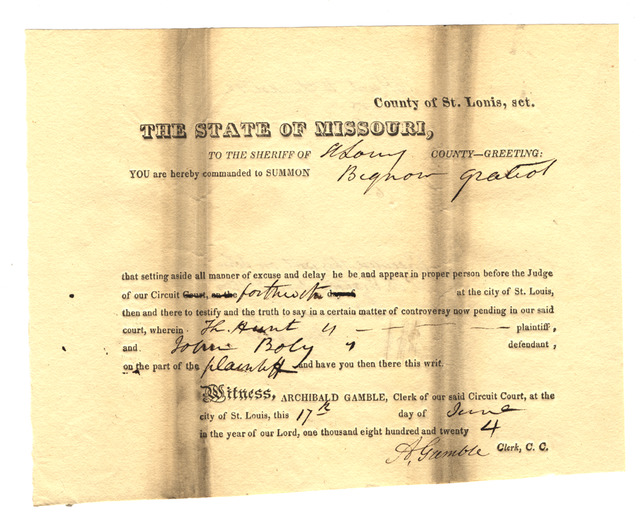 County of St. Louis, sct.
THE STATE OF MISSOURI,
TO THE SHERIFF OF St Louis COUNTY—GREETING:
YOU are hereby commanded to SUMMON Bignow gratiot
that setting aside all manner of excuse and delay he be and appear in proper person before the Judge
of our Circuit Court, on the forthwith day of at the city of St. Louis,
then and there to testify and the truth to say in a certain matter of controversy now pending in our said
court, wherein Th. Hunt is plaintiff,
and John Boly is defendant,
on the part of the plaintiff and have you then there this writ.
Witness, ARCHIBALD GAMBLE, Clerk of our said Circuit Court, at the
city of St. Louis, this 17th day of June
in the year of our Lord, one thousand eight hundred and twenty 4
A. Gamble Clerk, C. C.